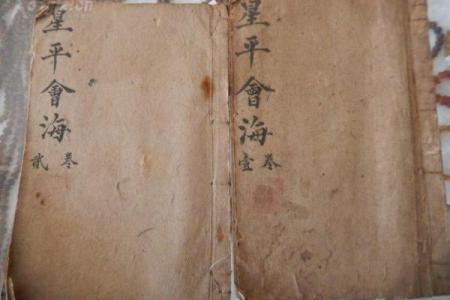 星平會海
卷壹
星平會海
卷貳